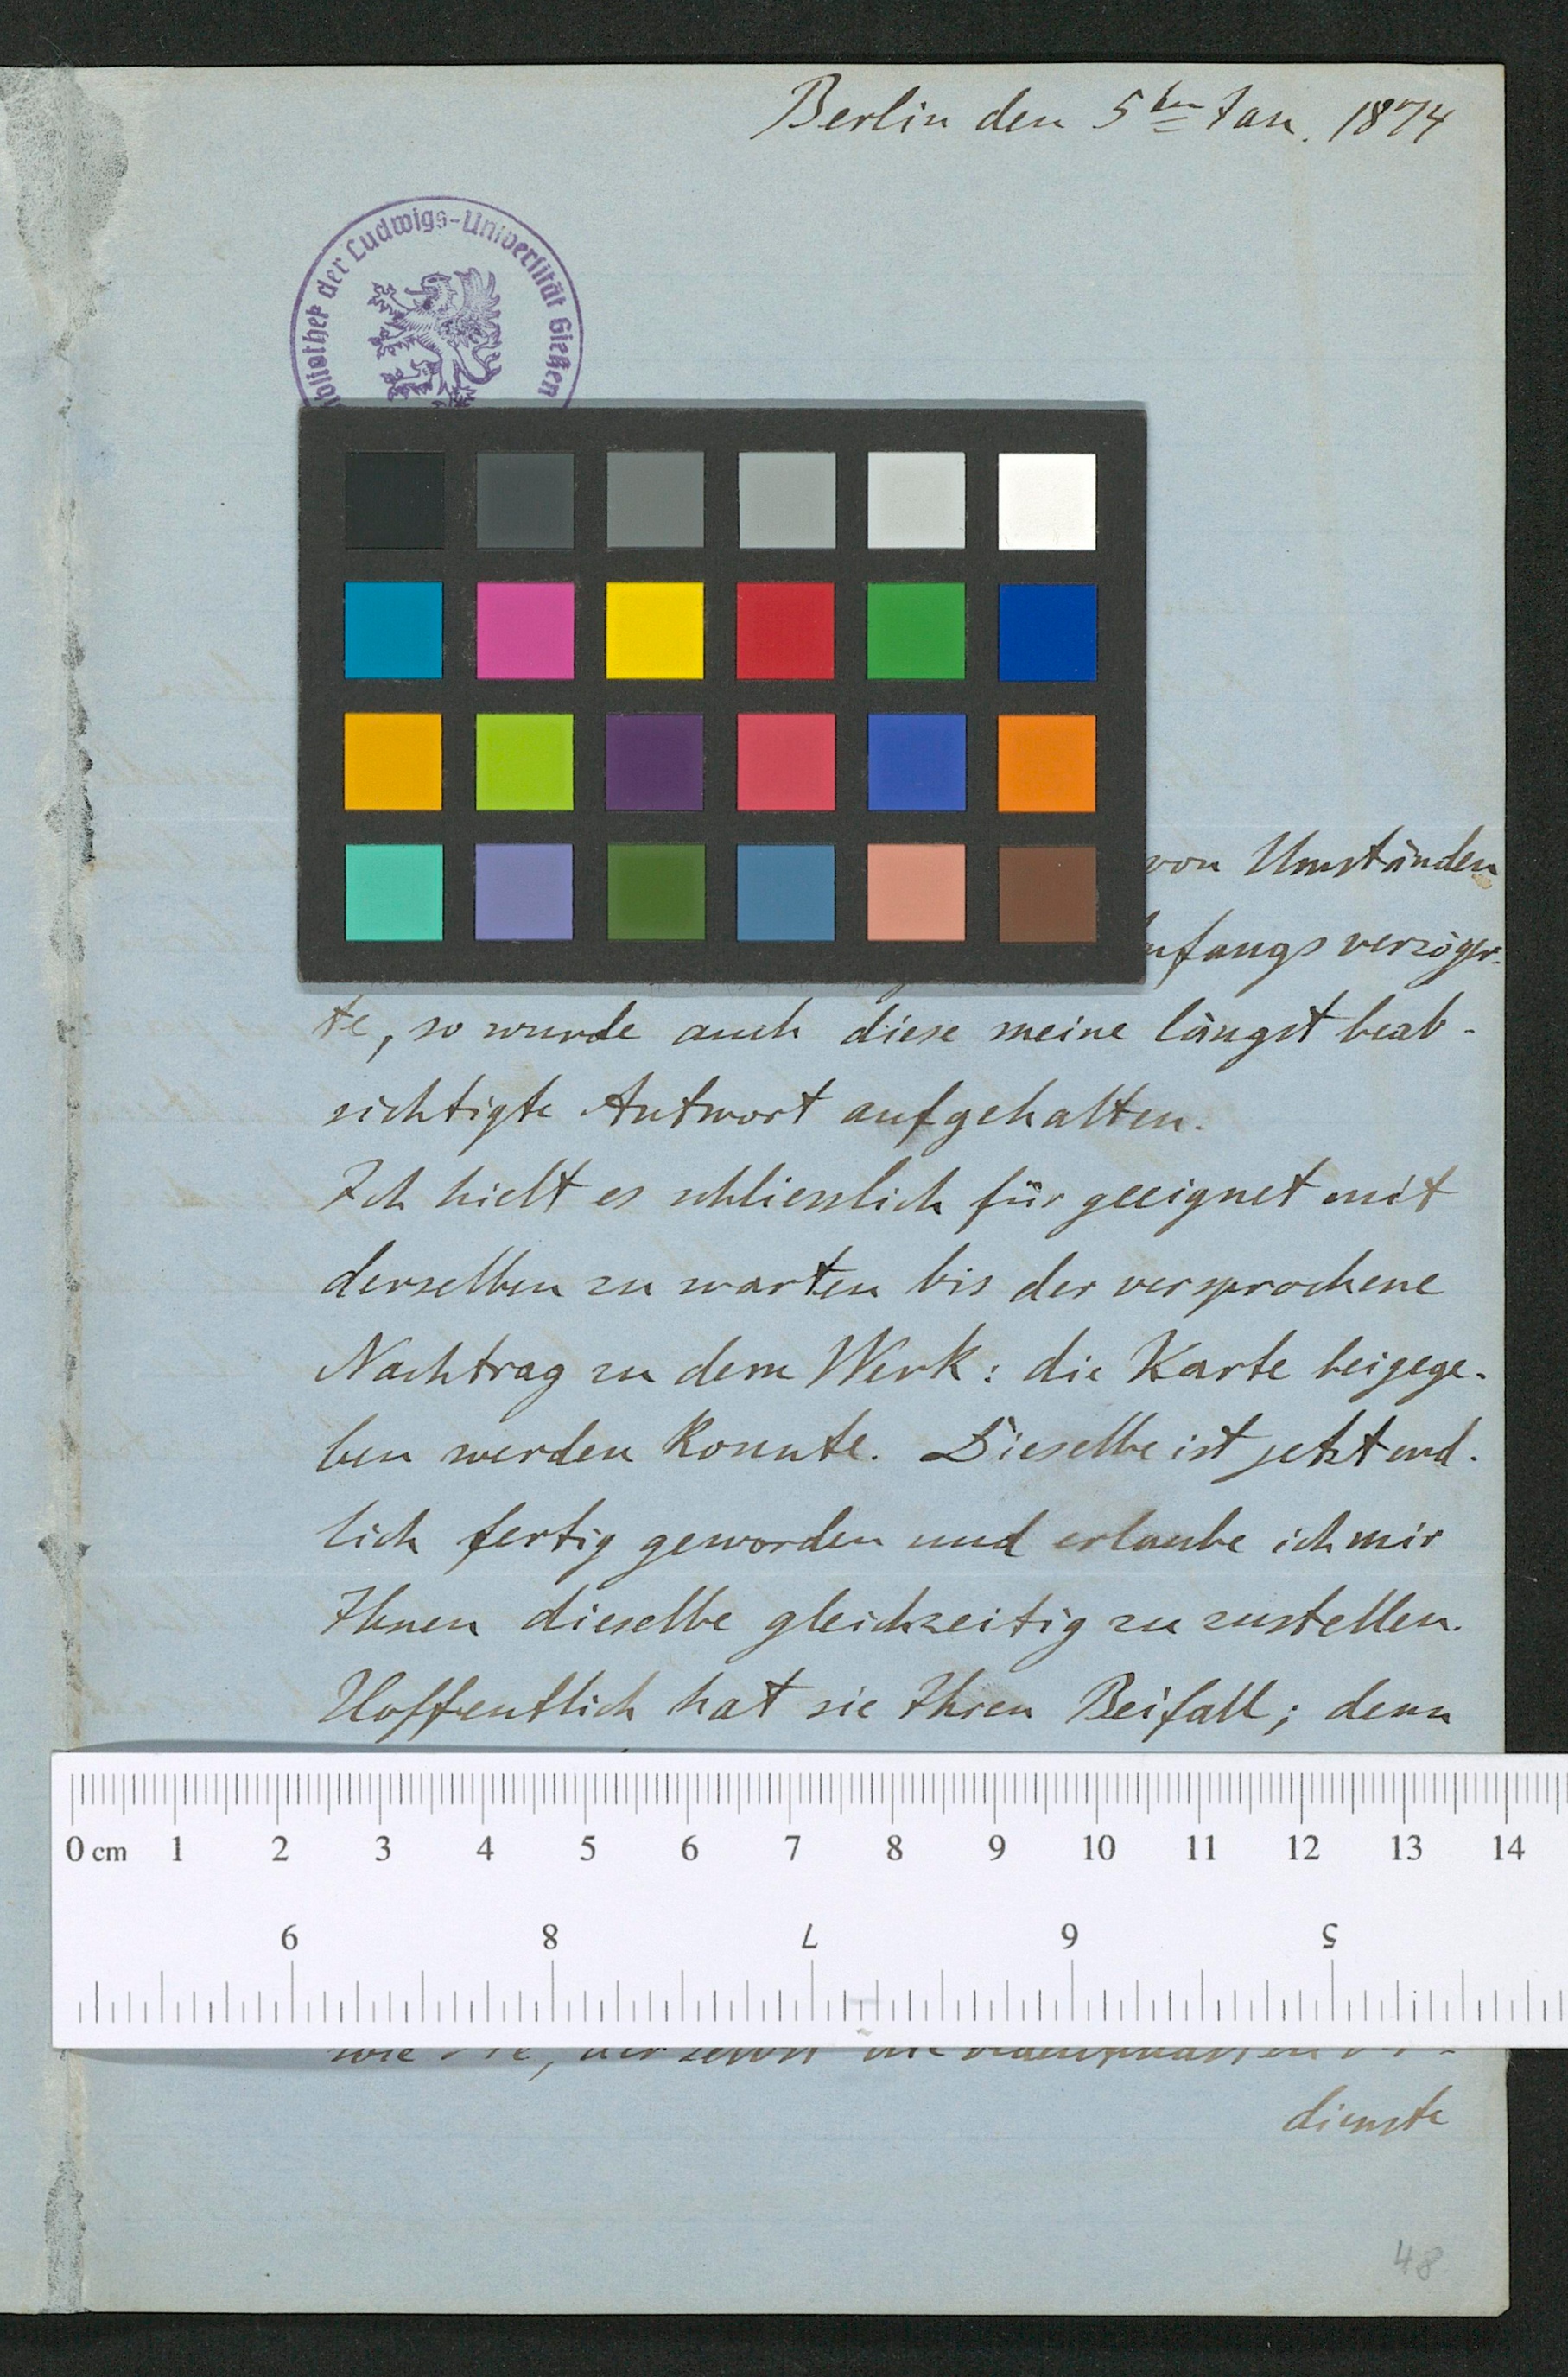 Berlin den 5ten Jan. 1874
Bibliothek der Ludwigs-Universität Gießen
von Umständen
Anfangs verzöger-
te, so wurde auch diese meine längst beab-
sichtigte Antwort aufgehalten.
Ich hielt es schliesslich für geeignet mit
derselben zu warten bis der versprochene
Nachtrag zu dem Werk: die Karte beigege-
ben werden konnte. Dieselbe ist jetzt end-
lich fertig geworden und erlaube ich mir
Ihnen dieselbe gleichzeitig zu zustellen.
Hoffentlich hat sie Ihren Beifall; denn
0 cm 1 2 3 4 5 6 7 8 9 10 11 12 13 14
9 8 7 6 5
wie Sie, der selbst
dienste
48